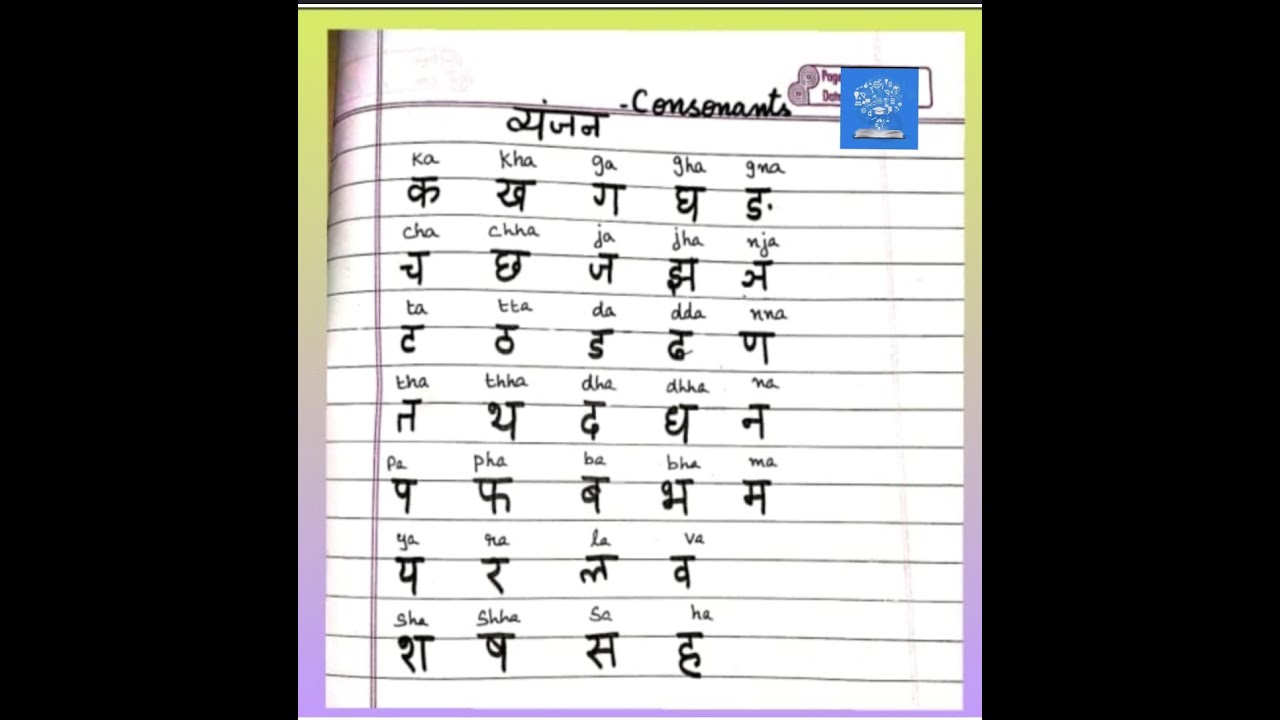 व्यंजन - Consonants
Page
Date
ka kha ga gha gna
क ख ग घ ङ
cha chha ja jha nja
च छ ज झ ञ
ta tta da dda nna
ट ठ ड ढ ण
tha thha dha dhha na
त थ द ध न
pa pha ba bha ma
प फ ब भ म
ya ra la va
य र ल व
sha shha sa ha
श ष स ह